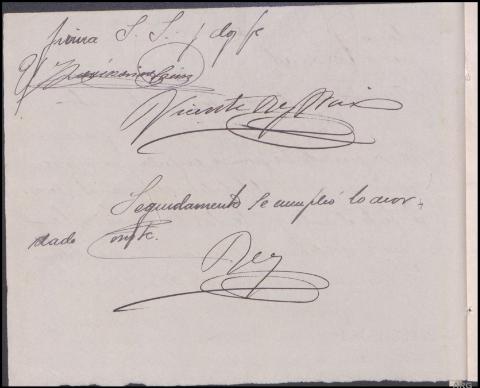 firma S. S. y doy fe
Maximiano Sainz
Vicente Rey Ruiz
Seguidamente se cumplió lo acor-
dado doy fe.
Rey